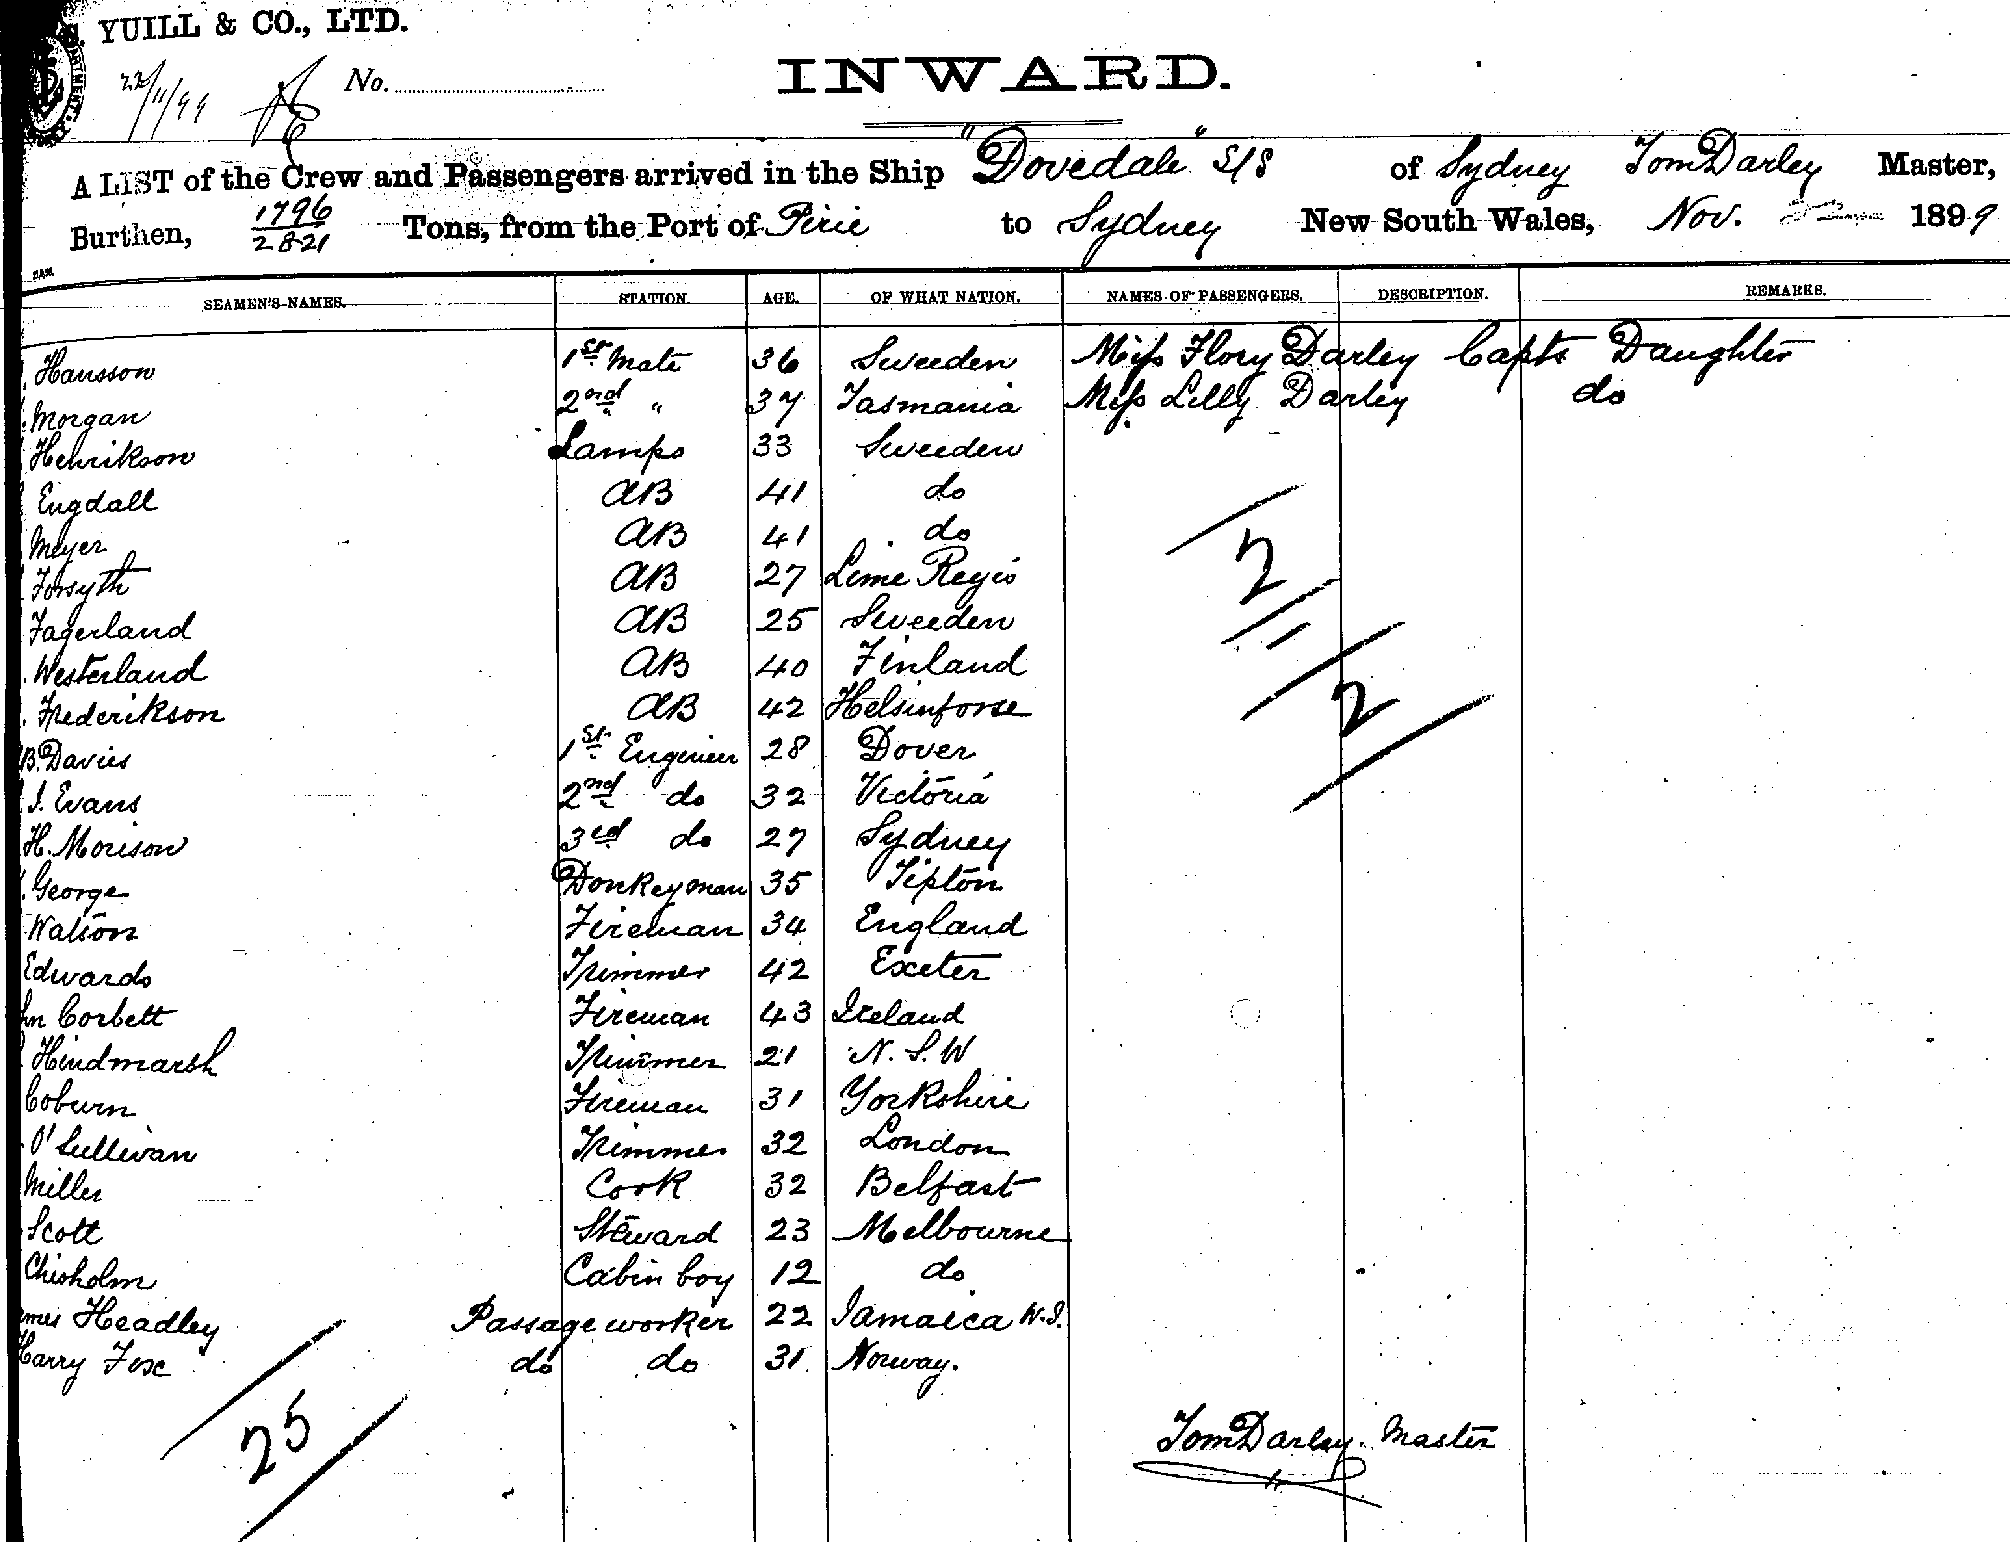 . YUILL & CO., LTD.
22/11/99 No.
INWARD.
A LIST of the Crew and Passengers arrived in the Ship "Dovedale" S/S of Sydney Tom Darley Master,
Burthen, 1796 / 2821 Tons, from the Port of Pirie to Sydney New South Wales, Nov. 1899
SEAMEN'S NAMES. STATION. AGE. OF WHAT NATION. NAMES OF PASSENGERS. DESCRIPTION. REMARKS.
Hansson 1st Mate 36 Sweeden Miss Flory Darley Capts Daughter
Morgan 2nd " 37 Tasmania Miss Lilly Darley do
Henrikson Lamps 33 Sweeden
Engdall AB 41 do
Meyer AB 41 do
Forsyth AB 27 Lime Regis
Fagerland AB 25 Sweeden
Westerland AB 40 Finland
Frederikson AB 42 Helsinforse
B. Davies 1st Engineer 28 Dover
J. Evans 2nd do 32 Victoria
H. Morison 3rd do 27 Sydney
George Donkeyman 35 Tipton
Watson Fireman 34 England
Edwards Trimmer 42 Exeter
hn Corbett Fireman 43 Ireland
Hindmarsh Trimmer 21 N.S.W
Coburn Fireman 31 Yorkshire
O'Sullivan Trimmer 32 London
Miller Cook 32 Belfast
Scott Steward 23 Melbourne
Chisholm Cabin boy 12 do
mes Headley Passage worker 22 Jamaica W.I.
Harry Fox do do 31 Norway.
2
2
25
Tom Darley. Master